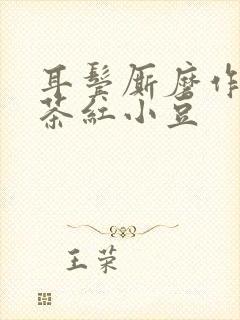 耳鬓厮磨作
茶红小豆
王荣